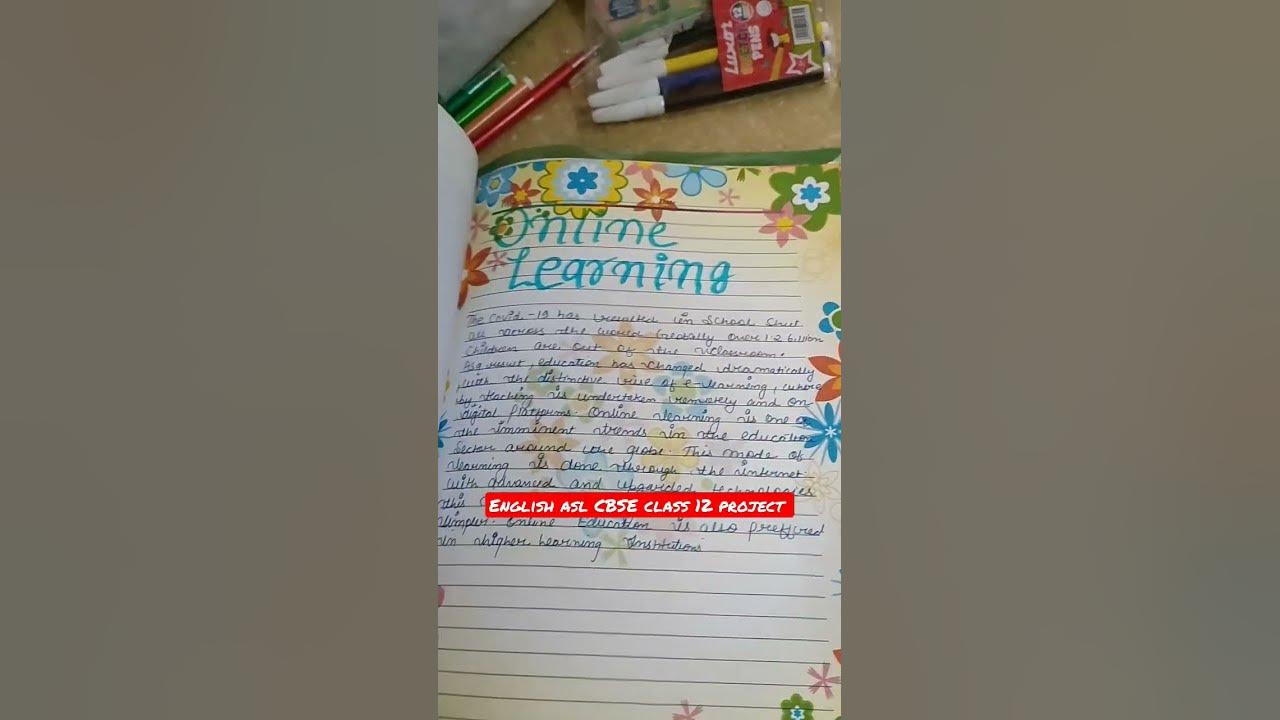 Luxor
PENS
Online
Learning
The Covid-19 has resulted in School Shut
all across the world Globally over 1.2 billion
Children are out of the classroom.
As a result, education has changed dramatically
with the distinctive rise of e-learning, where
by teaching is undertaken remotely and on
digital platforms. Online learning is one of
the imminent trends in the education
Sector around the globe. This mode of
learning is done through the internet.
with advanced and upgarded technologies
this
ENGLISH ASL CBSE CLASS 12 PROJECT
simpler. Online Education is also preffered
in higher Learning Institutions